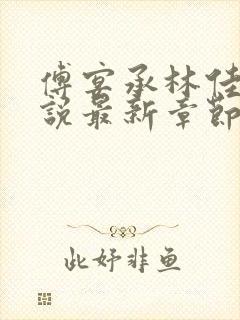 傅宴承林佳
說最新章節
此妤非鱼